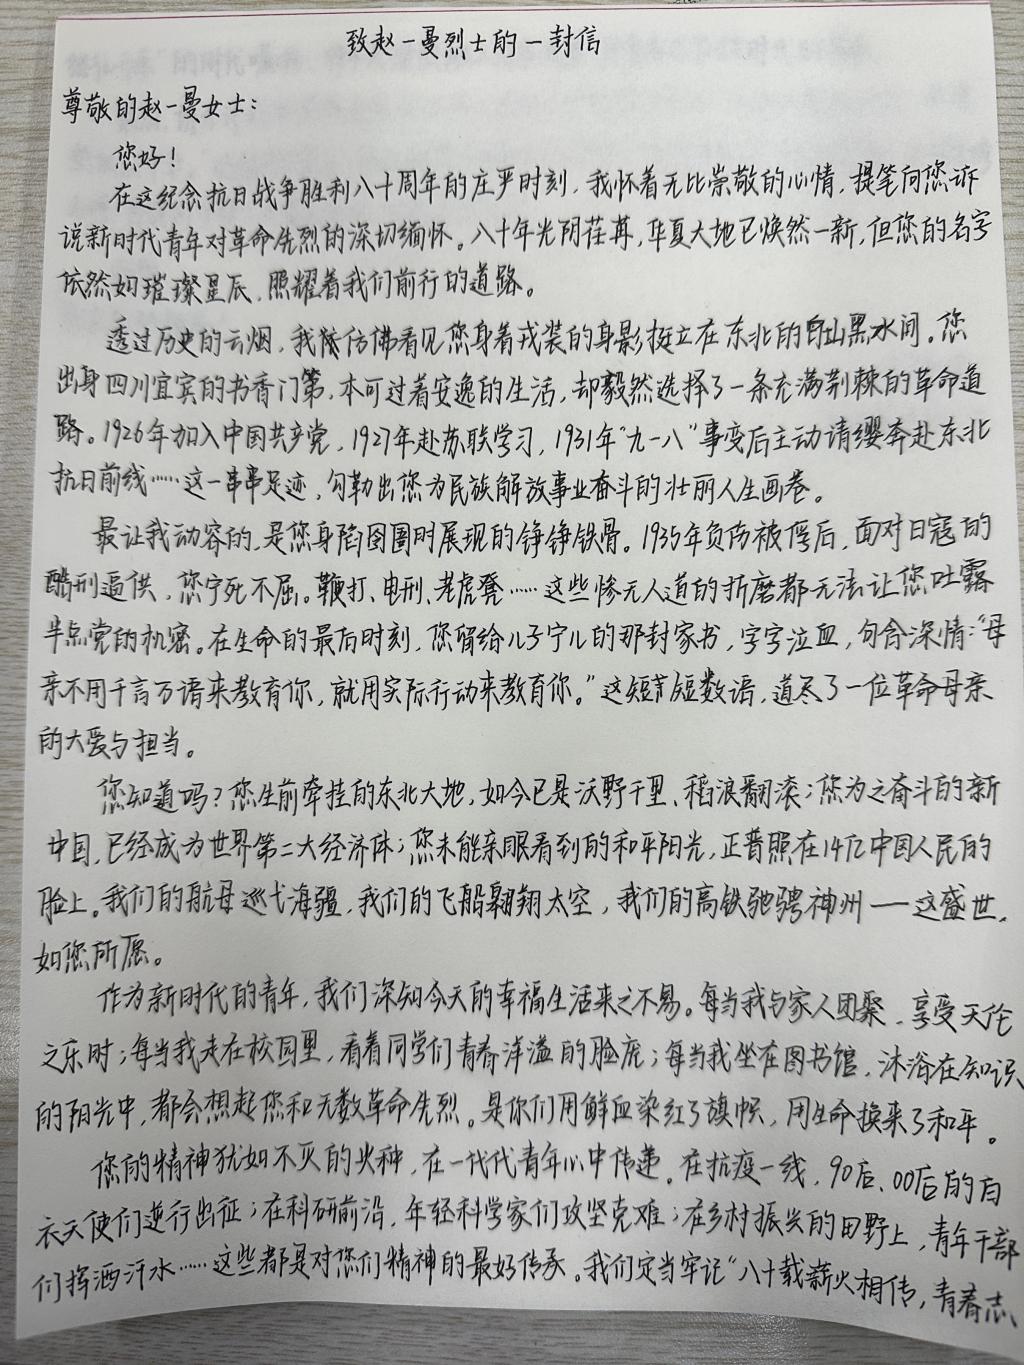 致赵一曼烈士的一封信
尊敬的赵一曼女士：
您好！
在这纪念抗日战争胜利八十周年的庄严时刻，我怀着无比崇敬的心情，提笔向您诉
说新时代青年对革命先烈的深切缅怀。八十年光阴荏苒，华夏大地已焕然一新，但您的名字
依然如璀璨星辰，照耀着我们前行的道路。
透过历史的云烟，我仿佛看见您身着戎装的身影挺立在东北的白山黑水间。您
出身四川宜宾的书香门第，本可过着安逸的生活，却毅然选择了一条充满荆棘的革命道
路。1926年加入中国共产党，1927年赴苏联学习，1931年“九一八”事变后主动请缨奔赴东北
抗日前线……这一串串足迹，勾勒出您为民族解放事业奋斗的壮丽人生画卷。
最让我动容的，是您身陷囹圄时展现的铮铮铁骨。1935年负伤被俘后，面对日寇的
酷刑逼供，您宁死不屈。鞭打、电刑、老虎凳……这些惨无人道的折磨都无法让您吐露
半点党的机密。在生命的最后时刻，您留给儿子宁儿的那封家书，字字泣血，句含深情：“母
亲不用千言万语来教育你，就用实际行动来教育你。”这短短数语，道尽了一位革命母亲
的大爱与担当。
您知道吗？您生前牵挂的东北大地，如今已是沃野千里、稻浪翻滚；您为之奋斗的新
中国，已经成为世界第二大经济体；您未能亲眼看到的和平阳光，正普照在14亿中国人民的
脸上。我们的航母巡弋海疆，我们的飞船翱翔太空，我们的高铁驰骋神州——这盛世，
如您所愿。
作为新时代的青年，我们深知今天的幸福生活来之不易。每当我与家人团聚，享受天伦
之乐时；每当我走在校园里，看着同学们青春洋溢的脸庞；每当我坐在图书馆，沐浴在知识
的阳光中，都会想起您和无数革命先烈。是你们用鲜血染红了旗帜，用生命换来了和平。
您的精神犹如不灭的火种，在一代代青年心中传递。在抗疫一线，90后、00后的白
衣天使们逆行出征；在科研前沿，年轻科学家们攻坚克难；在乡村振兴的田野上，青年干部
们挥洒汗水……这些都是对您们精神的最好传承。我们定当牢记“八十载薪火相传，青春志